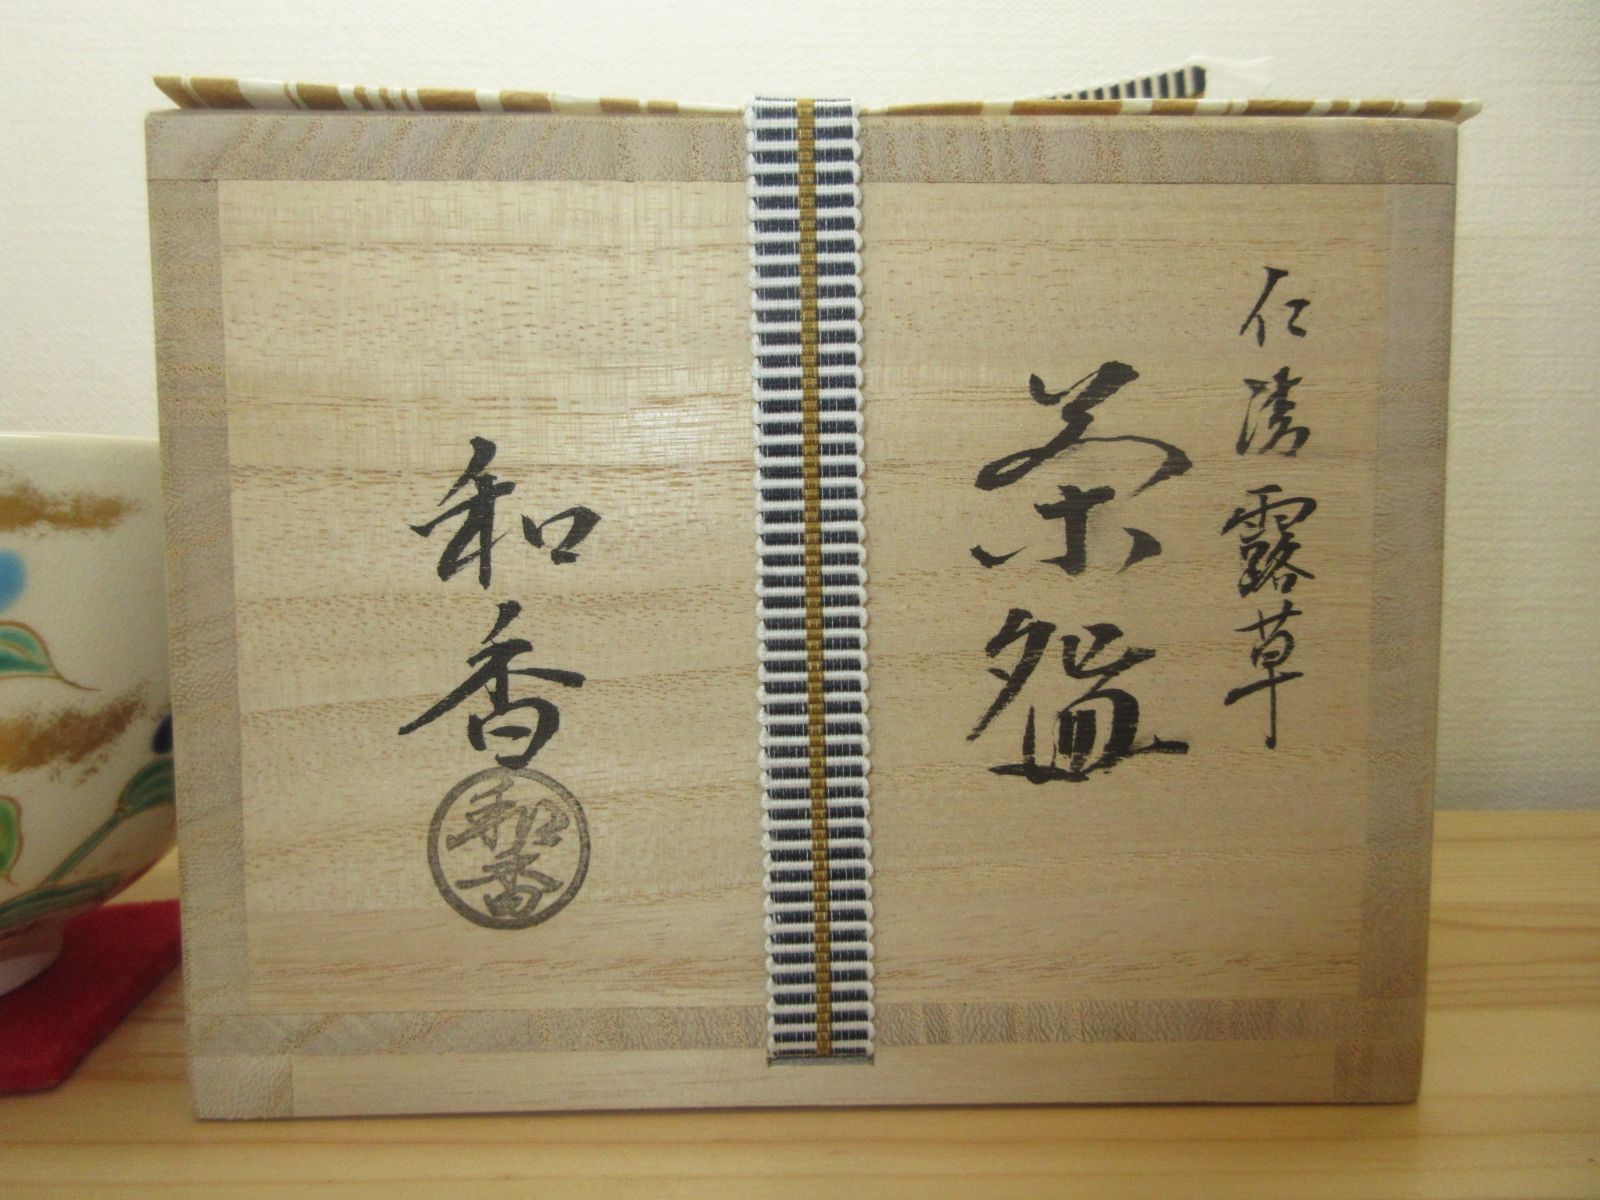 仁清 露草
茶盌
和香
和香